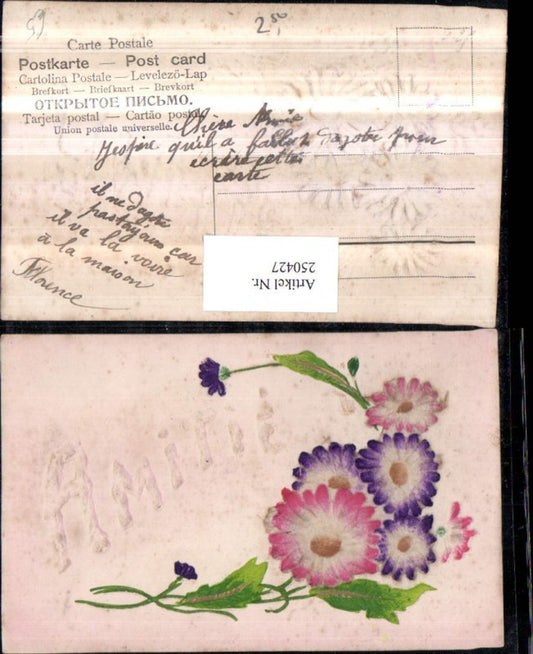 59
2.50
Carte Postale
Postkarte — Post card
Cartolina Postale — Levelezö-Lap
Brefkort — Briefkaart — Brevkort
ОТКРЫТОЕ ПИСЬМО.
Tarjeta postal — Cartão postal
Union postale universelle.
Chère
J'espère qu'il a
écrire cette
carte
il ne
pas car
il va la voire
à la maison
Florence
Artikel Nr.
250427
Amitié